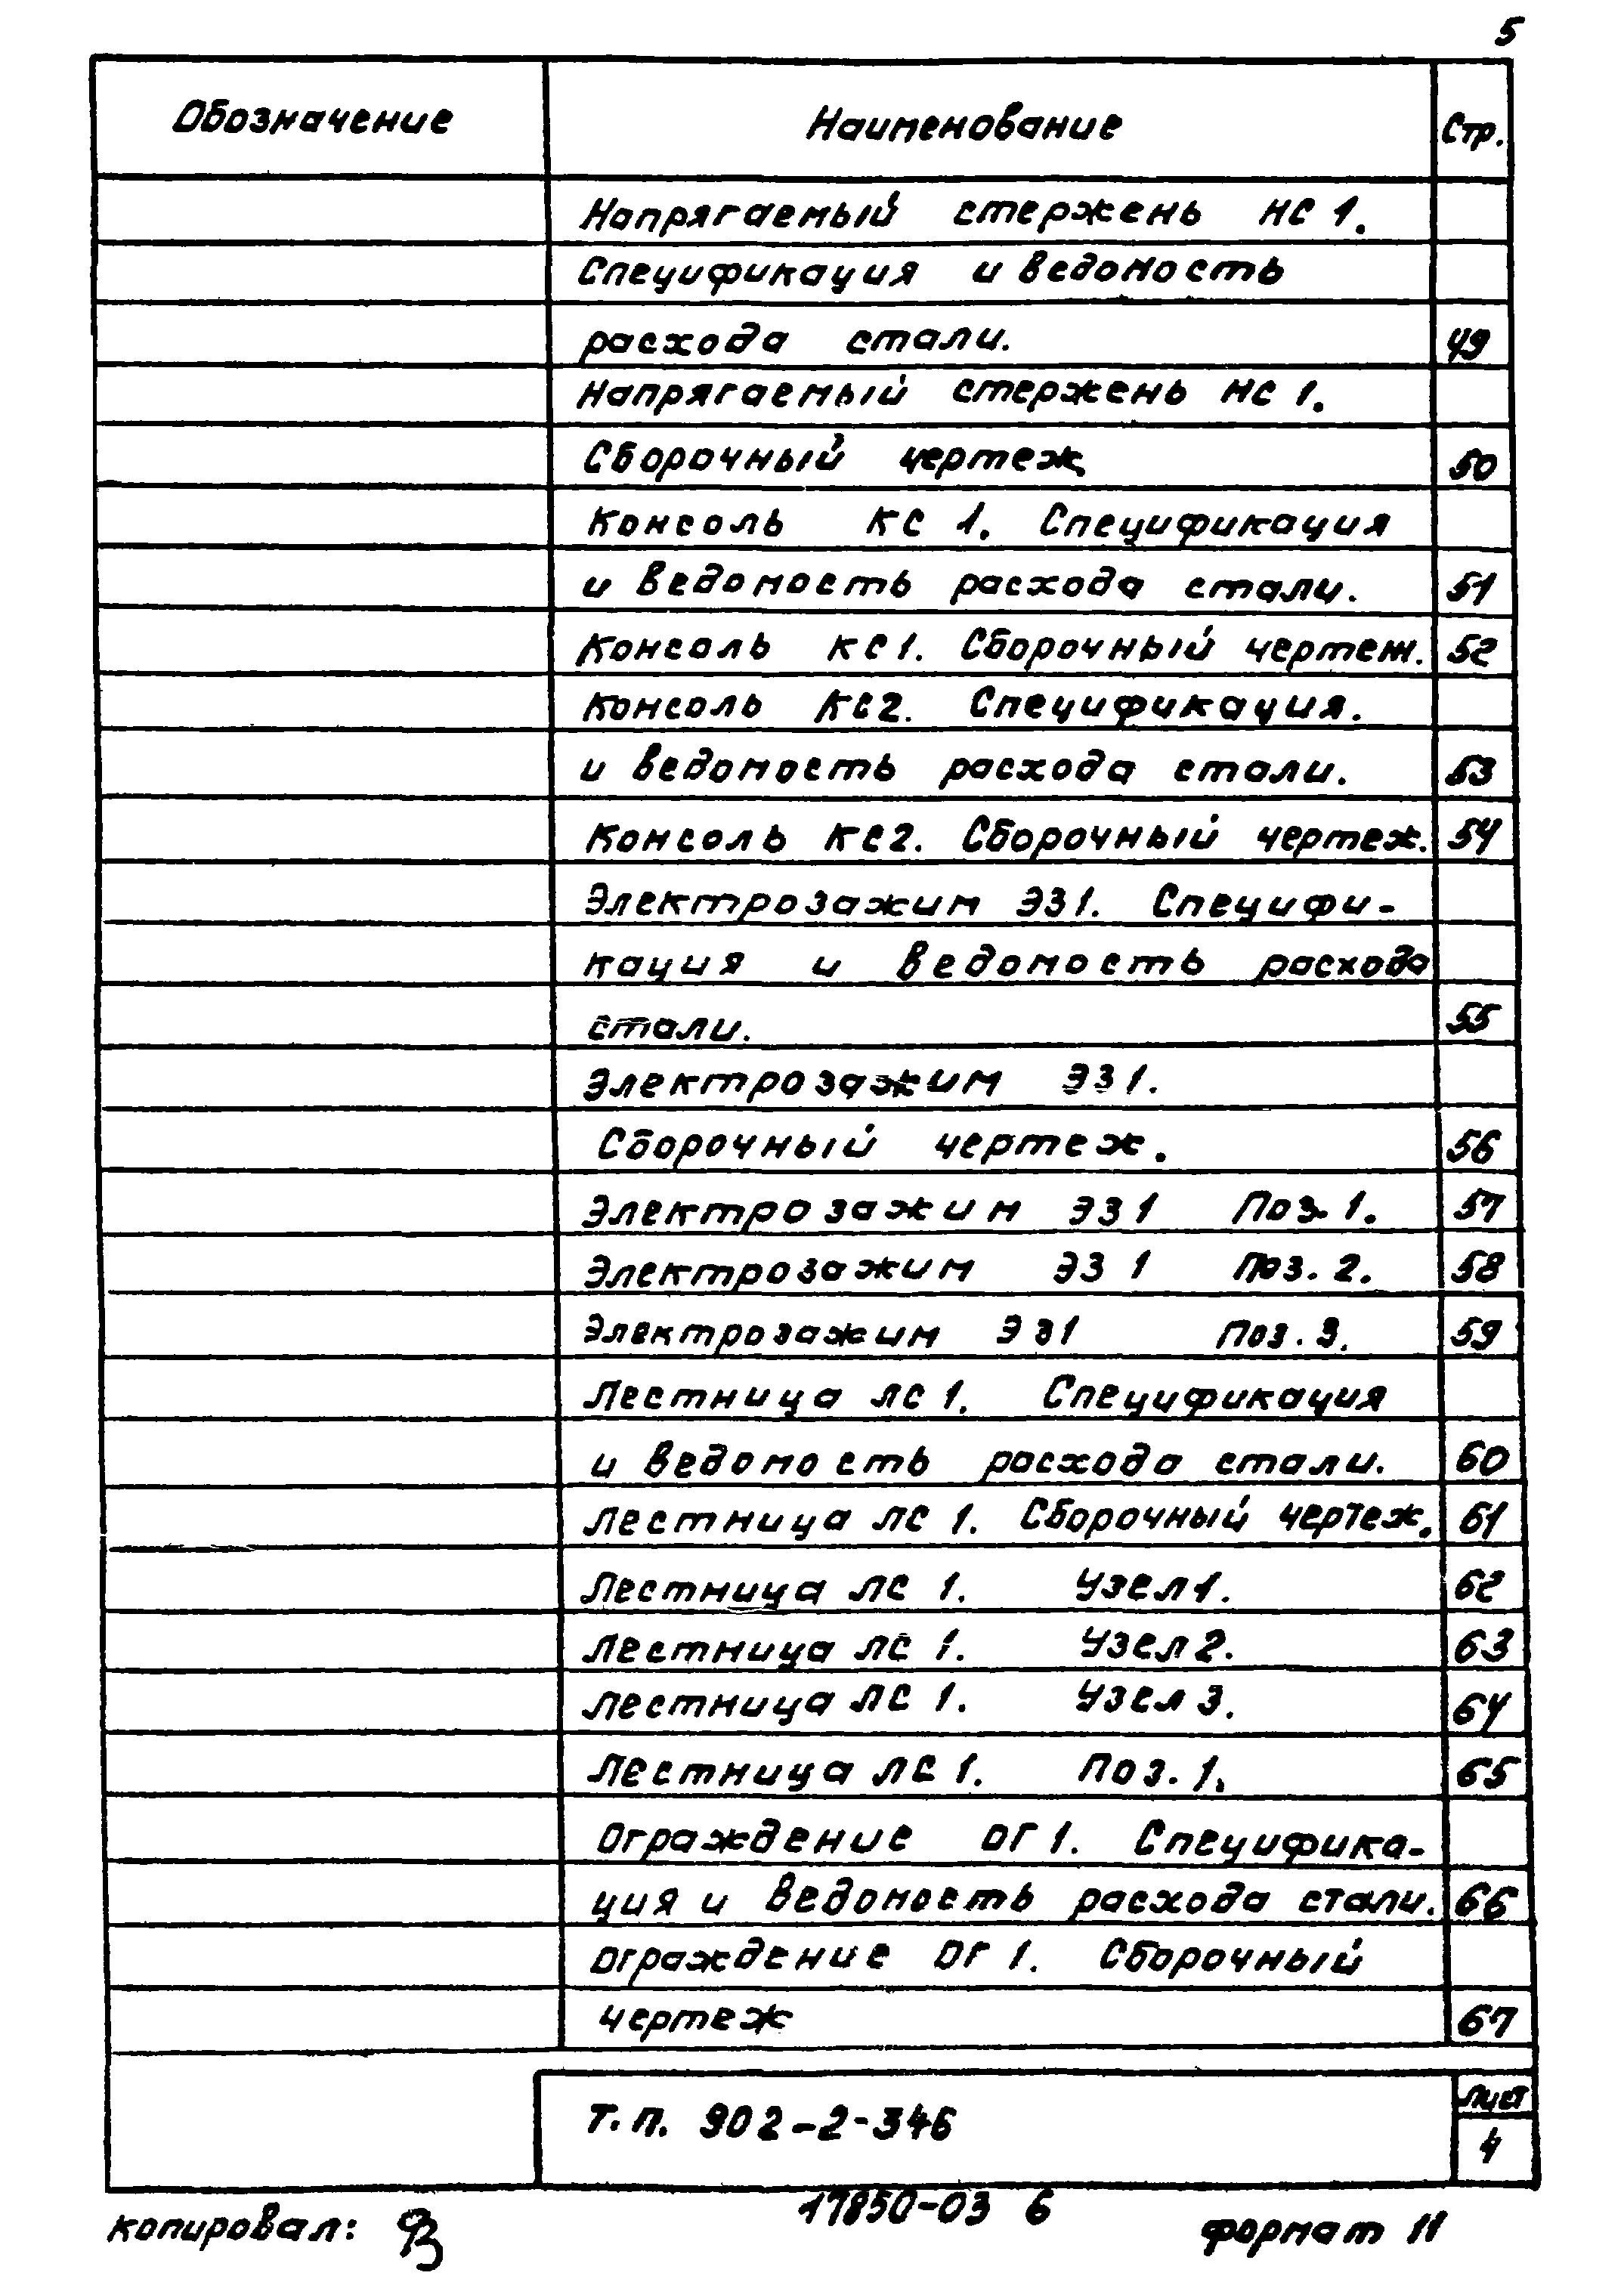 5
Обозначение Наименование Стр.
Напрягаемый стержень НС 1.
Спецификация и ведомость
расхода стали. 49
Напрягаемый стержень НС 1.
Сборочный чертеж 50
Консоль КС 1. Спецификация
и ведомость расхода стали. 51
Консоль КС1. Сборочный чертеж. 52
Консоль КС2. Спецификация.
и ведомость расхода стали. 53
Консоль КС2. Сборочный чертеж. 54
Электрозажим ЭЗ1. Специфи-
кация и ведомость расхода
стали. 55
Электрозажим ЭЗ1.
Сборочный чертеж. 56
Электрозажим ЭЗ1 Поз. 1. 57
Электрозажим ЭЗ 1 Поз. 2. 58
Электрозажим ЭЗ1 Поз. 3. 59
Лестница ЛС 1. Спецификация
и ведомость расхода стали. 60
Лестница ЛС 1. Сборочный чертеж. 61
Лестница ЛС 1. Узел 1. 62
Лестница ЛС 1. Узел 2. 63
Лестница ЛС 1. Узел 3. 64
Лестница ЛС 1. Поз. 1. 65
Ограждение ОГ 1. Специфика-
ция и ведомость расхода стали. 66
Ограждение ОГ 1. Сборочный
чертеж 67
Т. п. 902-2-346 Лист
4
копировал: 17850-03 6 формат 11